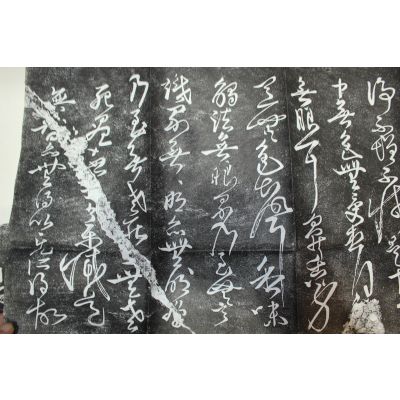 淨不增不減是
中無色無受想行
無眼耳鼻舌身
意無色聲香味
觸法無眼界乃至無意
識界無無明亦無無明盡
乃至無老死亦無老
死盡無苦集滅道
無智亦無得以無所得故